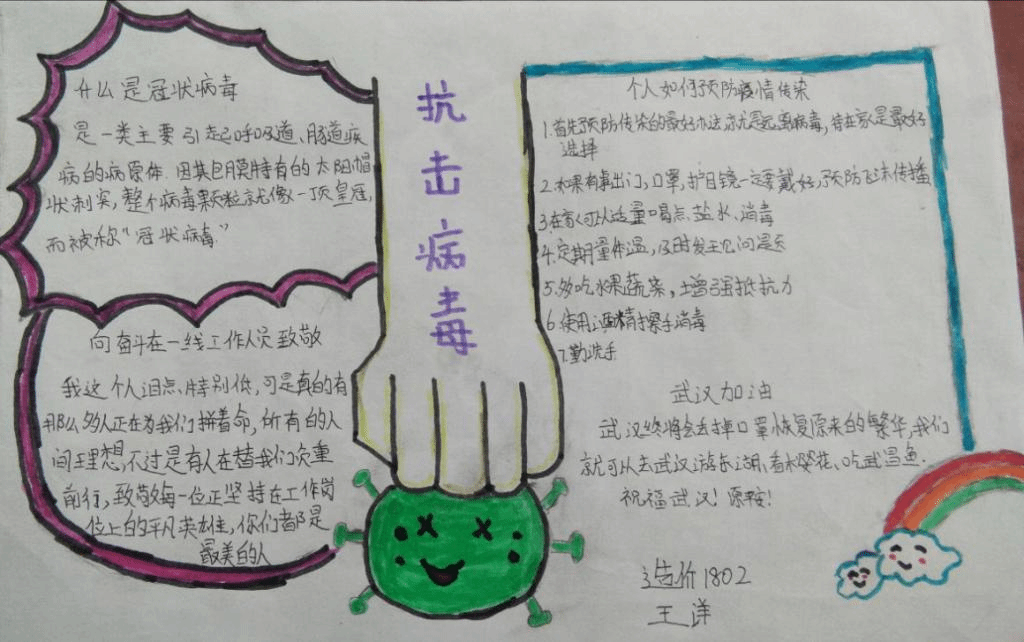 什么是冠状病毒
是一类主要引起呼吸道、肠道疾
病的病原体.因其包膜特有的太阳帽
状刺突,整个病毒颗粒就像一顶皇冠,
而被称"冠状病毒."
向奋斗在一线工作人员致敬
我这个人泪点、特别低,可是真的有
那么多人正在为我们拼着命,所有的人
间理想,不过是有人在替我们负重
前行,致敬每一位正坚持在工作岗
位上的平凡英雄,你们都是
最美的人
抗击病毒
个人如何预防疫情传染
1.首先预防传染的最好办法,就是远离病毒,待在家是最好
选择
2.如果有事出门,口罩,护目镜一定要戴好,预防飞沫传播
3.在家可以适量喝点、盐水、消毒
4.定期量体温,及时发现问题
5.多吃水果蔬菜,增强抵抗力
6.使用酒精擦手消毒
7.勤洗手
武汉加油
武汉终将会丢掉口罩恢复原来的繁华,我们
就可以去武汉游东湖,看樱花、吃武昌鱼.
祝福武汉!愿安!
造价1802
王洋